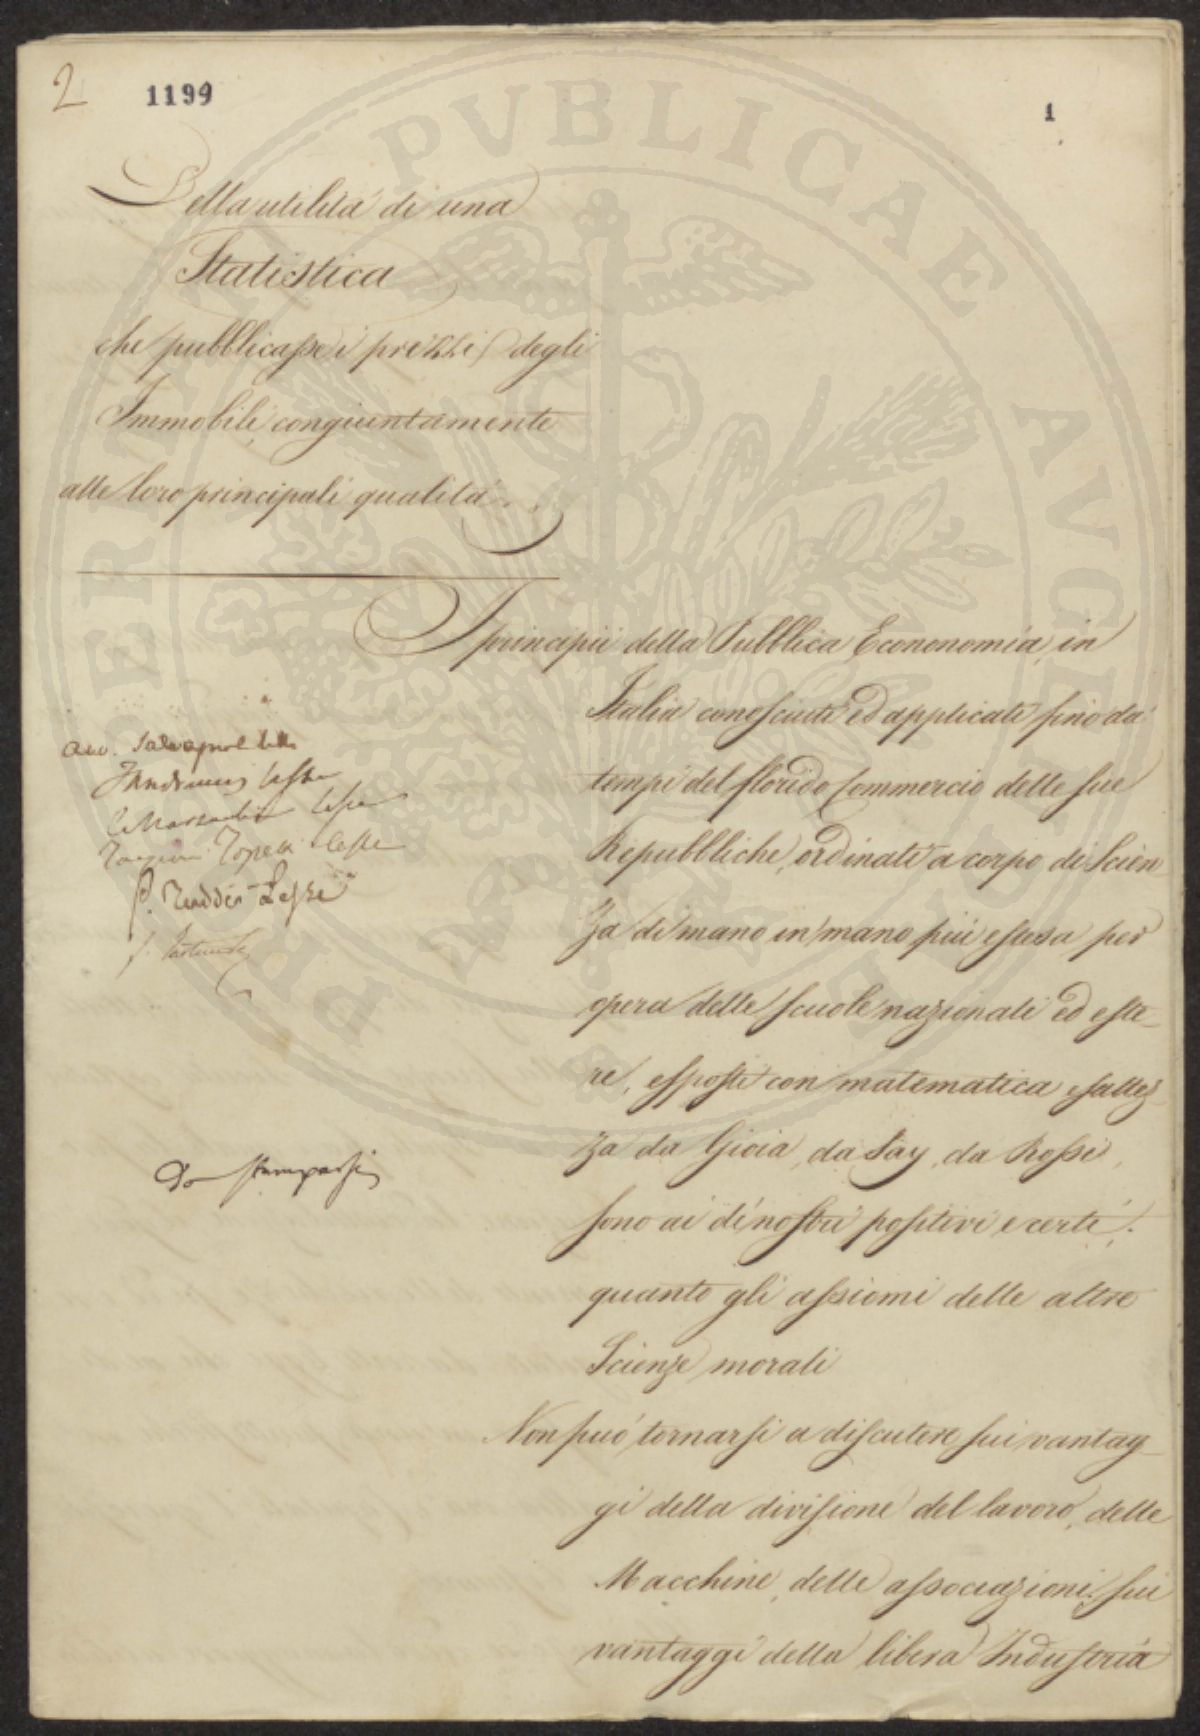 2
1199
1
Della utilità di una
Statistica
che pubblicasse i prezzi degli
Immobili congiuntamente
alle loro principali qualità.
I principii della Pubblica Econonomia, in
Italia conosciuti ed applicati fino da'
tempi del florido Commercio delle sue
Repubbliche, ordinati a corpo di Scien
za di mano in mano più estesa per
opera delle scuole nazionali ed este-
re, esposti con matematica esattez-
za da Gioia, da Say, da Rossi,
sono ai dì nostri positivi e certi,
quanto gli assiomi delle altre
Scienze morali
Non può tornarsi a discutere sui vantag-
gi della divisione del lavoro, delle
Macchine, delle associazioni; sui
vantaggi della libera Industria
avv. Salvagnoli
Lesse
P. Taddei Lesse
Da stamparsi
PVBLICAE AVGE
PROSPERITATI